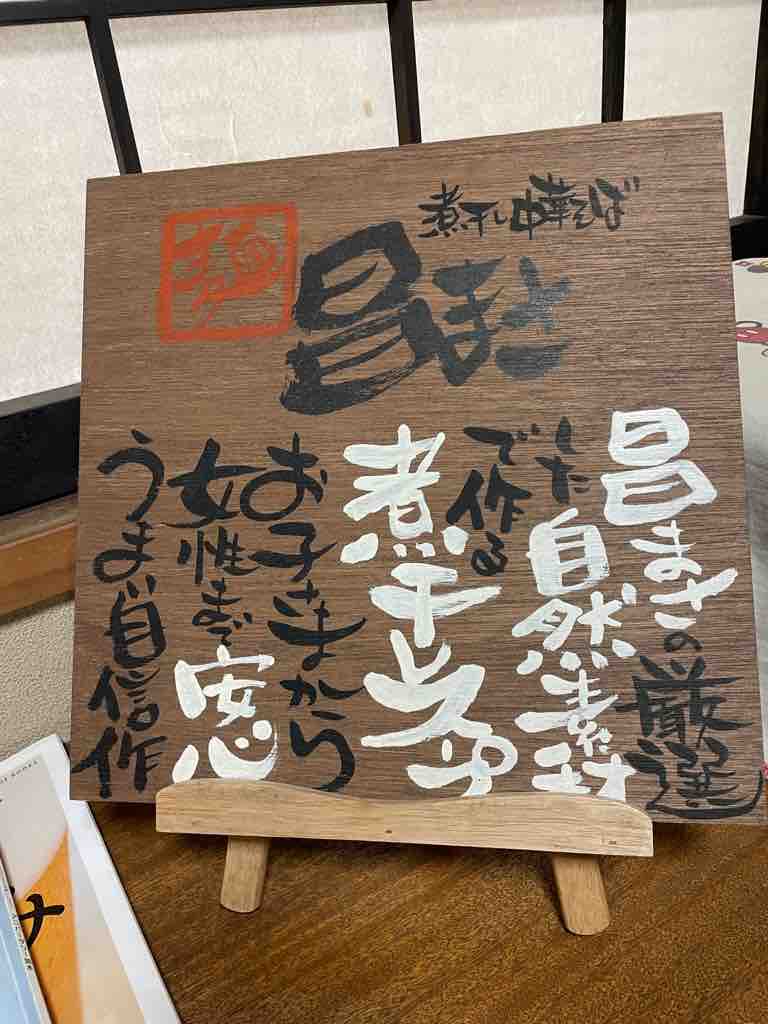 煮干し中華そば
麺
昌まさ
昌まさの厳選
した自然素材
で作る
煮干しそば
お子さまから
女性まで安心
うまい自信作
け